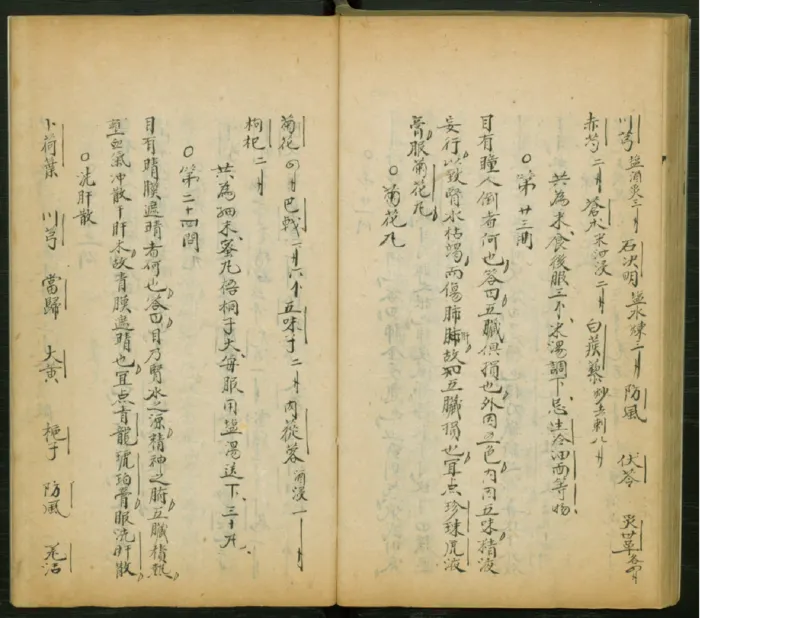 川芎 塩酒炙三 石決明 塩水煉二 防風 伏苓 炙草 各
赤芍二 蒼朮 米泔浸二 白蒺藜 炒去刺八
共為末食後服三个氷湯調下忌生冷油面等物
○第廿三問
目有瞳人倒者何也答曰五臓俱損也外因五色内因五味精液
妄行以致腎水枯竭而傷肺肺故知五臓損也宜点珍珠虎液
膏服菊花丸
○菊花丸
菊花四 巴戟一 六个 五味子二 肉蓯蓉 酒浸一
枸杞二
共為細末蜜丸梧桐子大毎服用塩湯送下三十丸
○第二十四問
目有睛膜遮睛者何也答曰目乃腎水之源精神之腑五臓積熱
壅血氣冲散于肝木故青膜遮睛也宜点青龍琥珀膏服洗肝散
○洗肝散
卜荷葉 川芎 當歸 大黄 梔子 防風 羌活